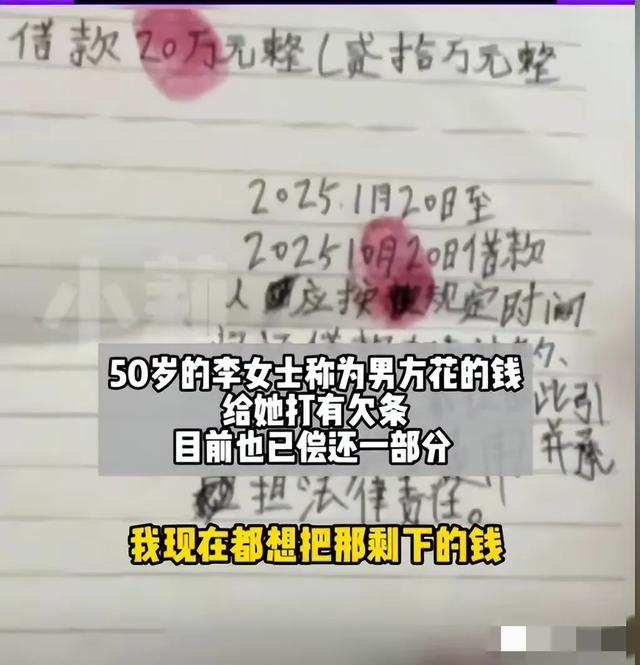 借款20万元整(贰拾万元整
2025.1月20日至
202510月20日借款
人应按规定时间
小莉
50岁的李女士称为男方花的钱
此引
给她打有欠条
并承
目前也已偿还一部分
担法律责任。
我现在都想把那剩下的钱